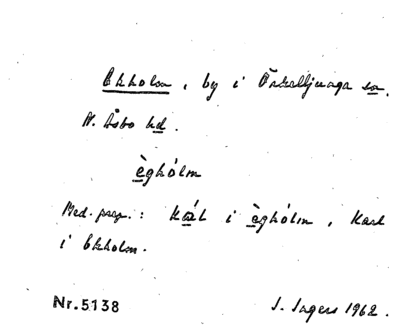 Ekholm, by i Örkelljunga sn.
N. Åsbo hd.
èghólm
Med. prep.: Kál i èghólm, Karl
i Ekholm.
Nr. 5138 J. Ingers 1962.